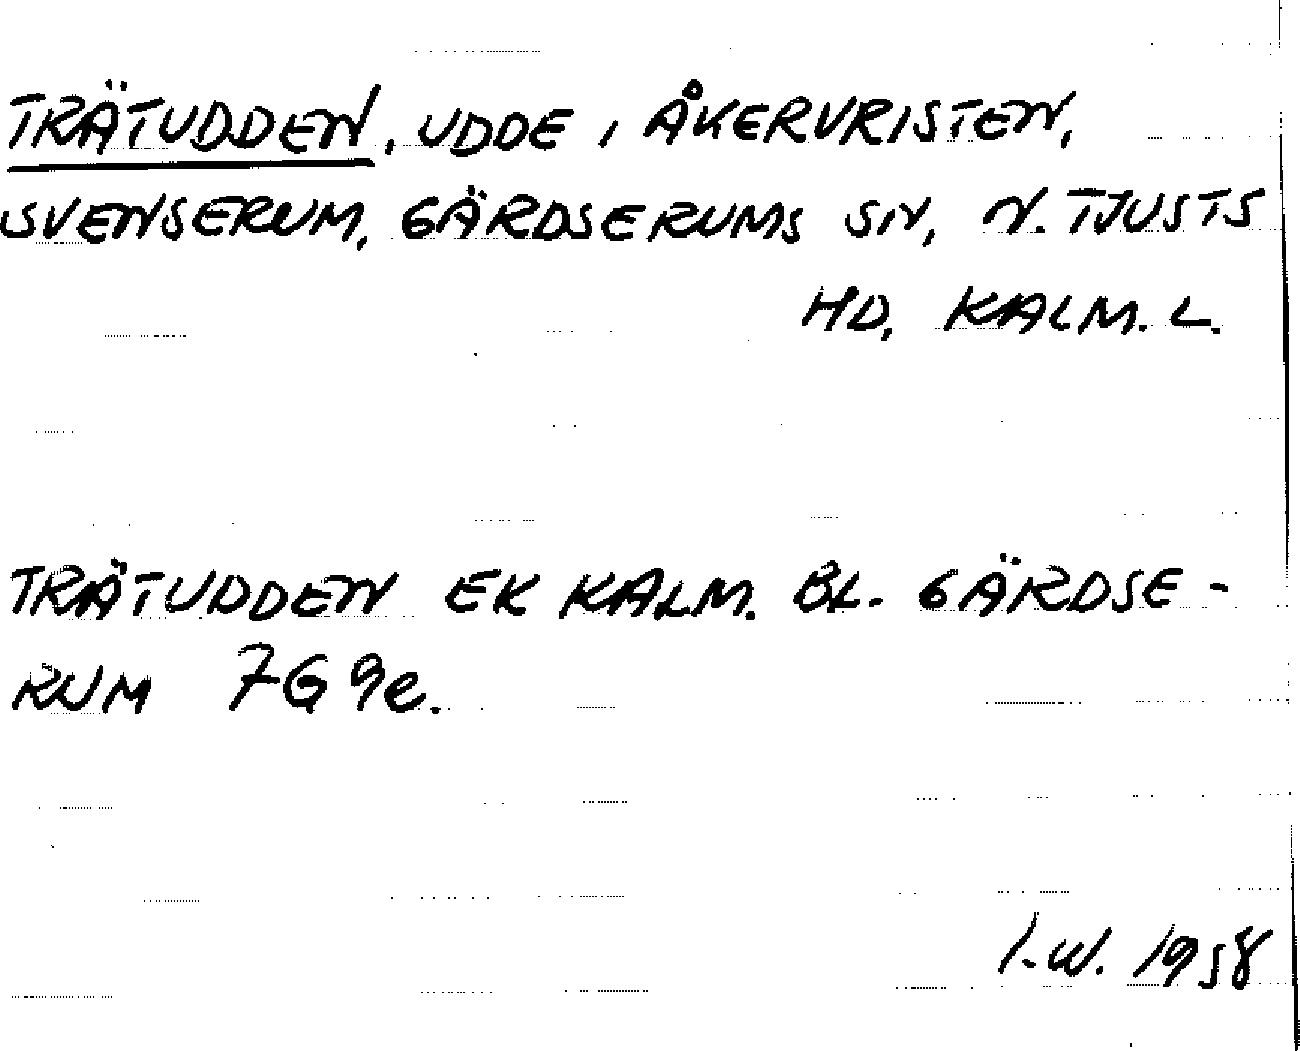 TRÄTUDDEN, UDDE I ÅKERVRISTEN,
SVENSERUM, GÄRDSERUMS SN, N. TJUSTS
HD, KALM. L.
TRÄTUDDEN EK KALM. BL. GÄRDSE-
RUM 7G 9e.
I.W. 1958